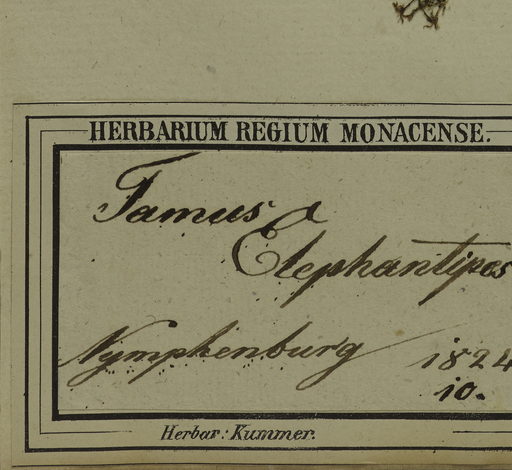 HERBARIUM REGIUM MONACENSE.
Tamus
Elephantipes
Nymphenburg 1824
10.
Herbar: Kummer.